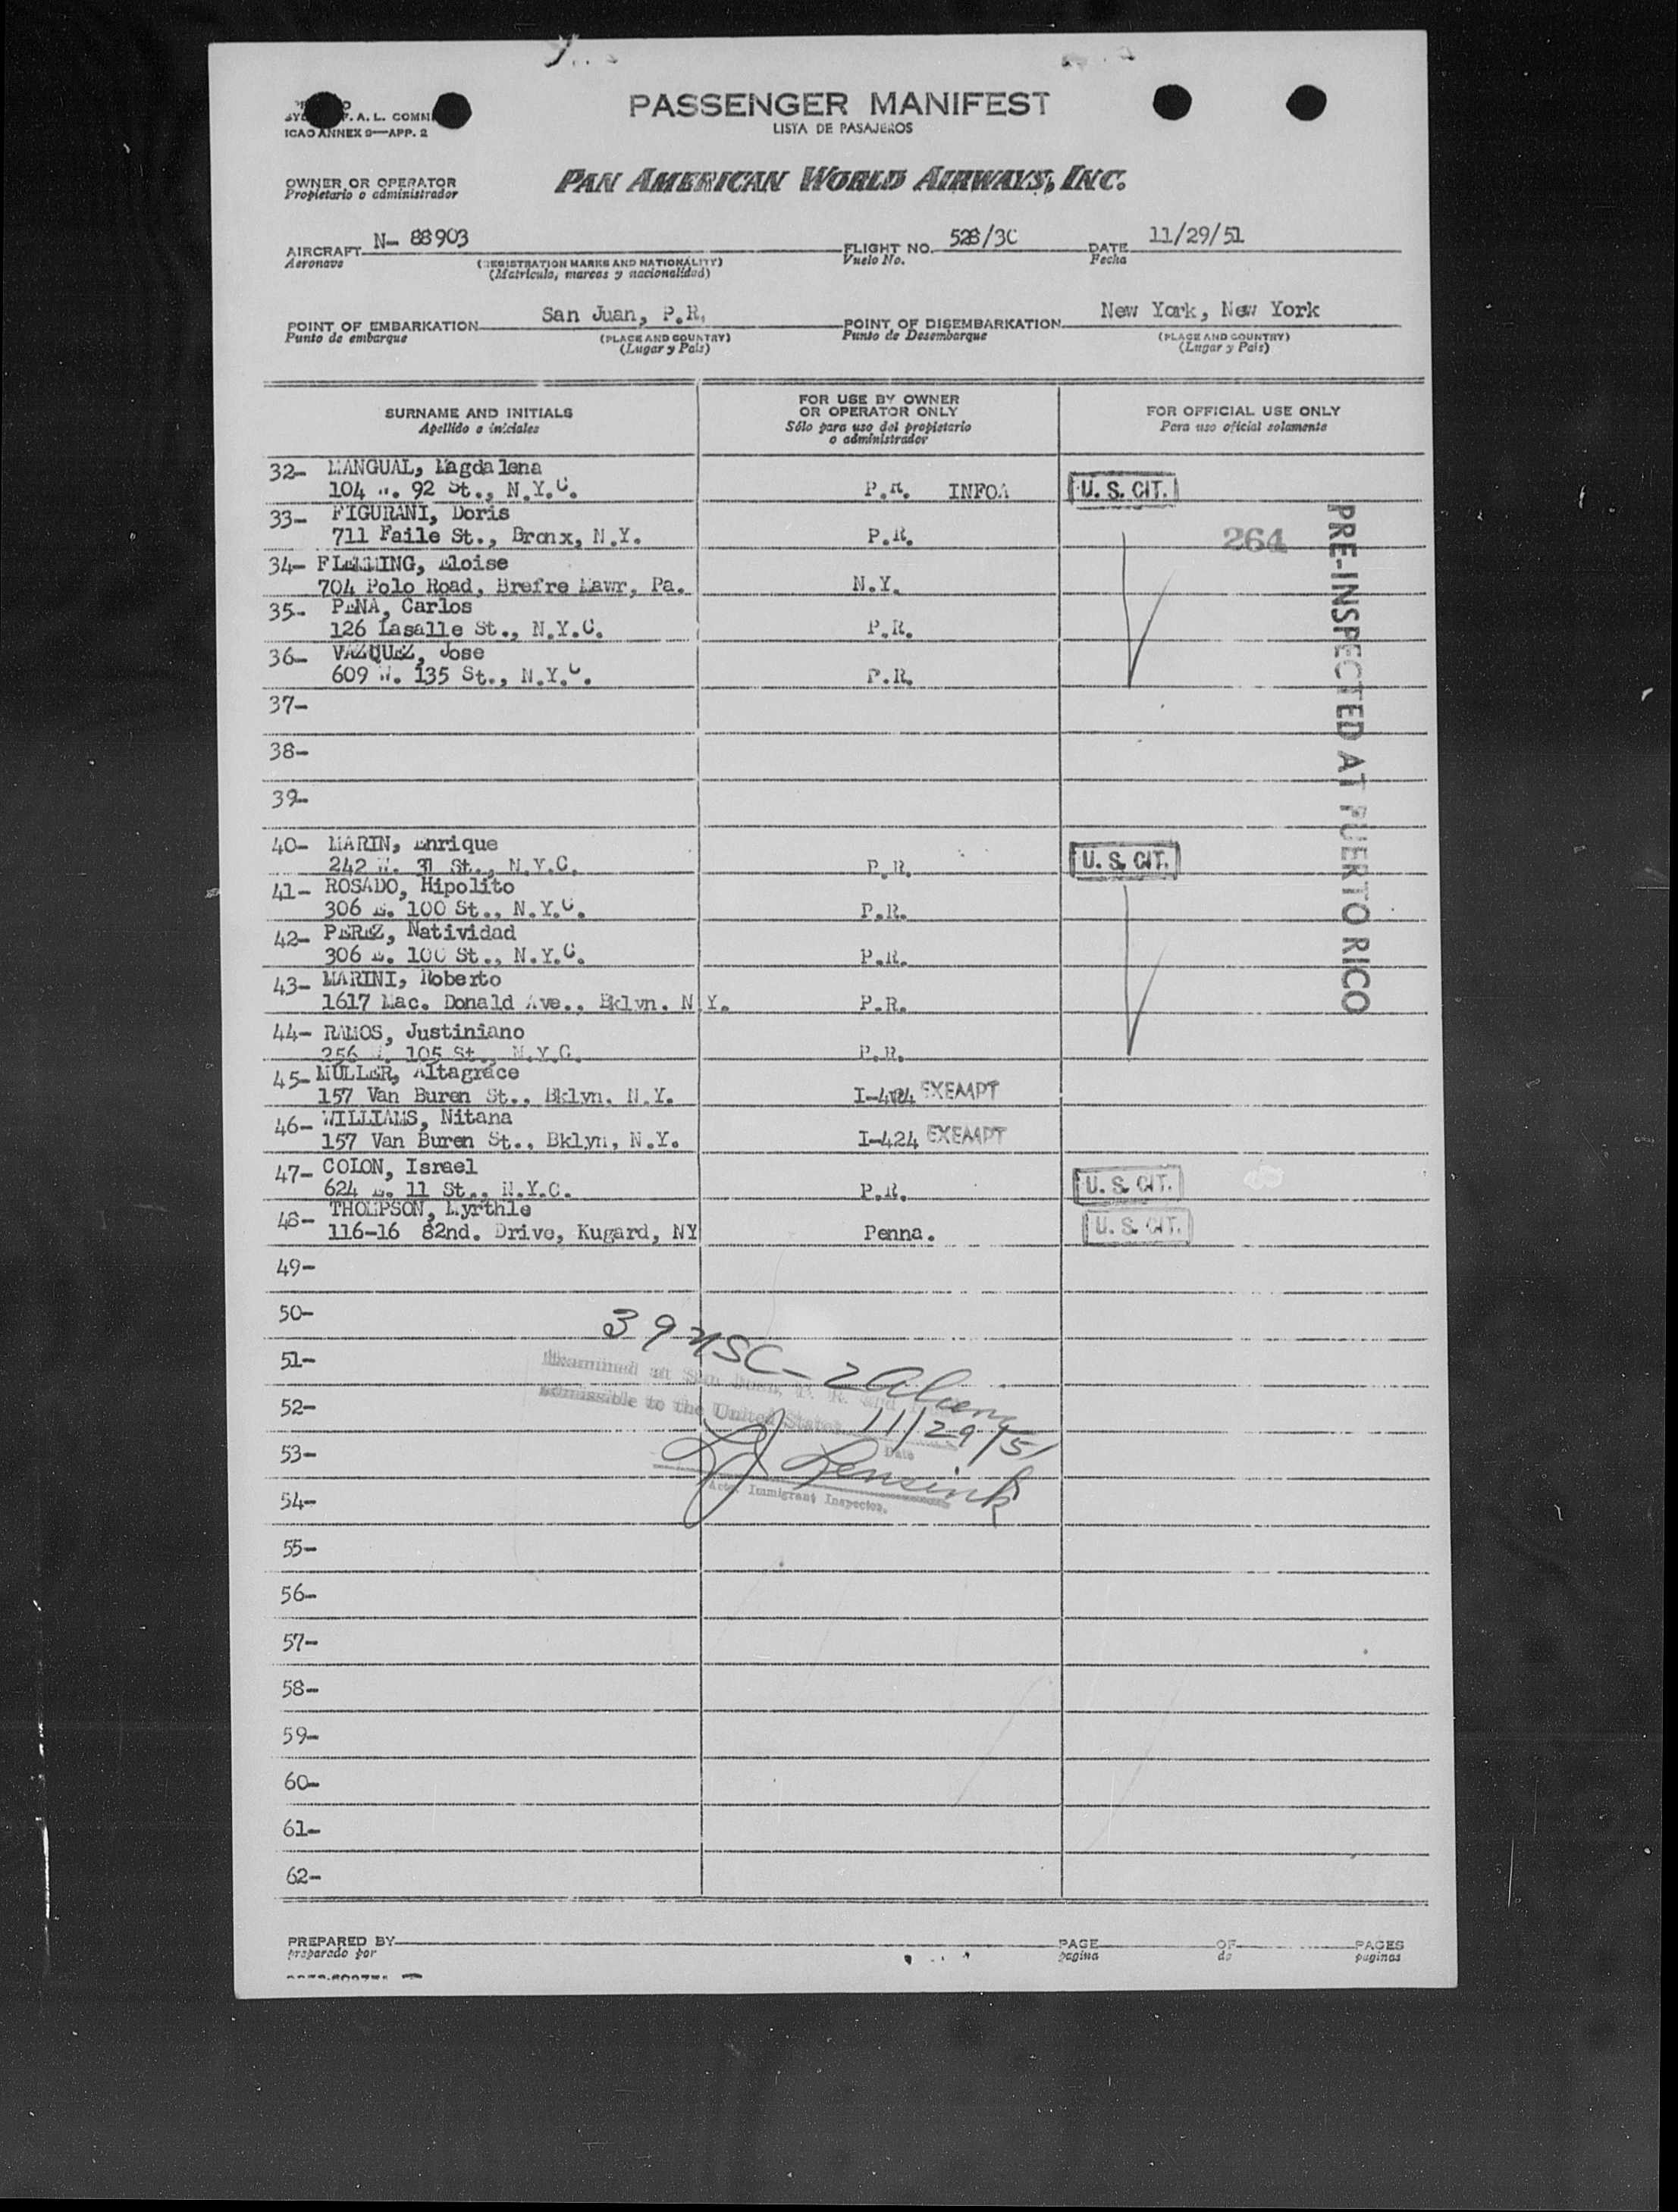 F. A. L. COMMI
ICAO ANNEX 9—APP. 2
PASSENGER MANIFEST
LISTA DE PASAJEROS
OWNER OR OPERATOR
Propietario o administrador
PAN AMERICAN WORLD AIRWAYS, INC.
AIRCRAFT N- 88903 FLIGHT NO. 528/30 DATE 11/29/51
Aeronave (REGISTRATION MARKS AND NATIONALITY) Vuelo No. Fecha
(Matricula, marcas y nacionalidad)
POINT OF EMBARKATION San Juan, P.R. POINT OF DISEMBARKATION New York, New York
Punto de embarque (PLACE AND COUNTRY) Punto de Desembarque (PLACE AND COUNTRY)
(Lugar y Pais) (Lugar y Pais)
SURNAME AND INITIALS FOR USE BY OWNER OR OPERATOR ONLY FOR OFFICIAL USE ONLY
Apellido e iniciales Sólo para uso del propietario o administrador Para uso oficial solamente
32- MANGUAL, Magdalena
104 W. 92 St., N.Y.C. P.R. INFOA U. S. CIT.
33- FIGURANI, Doris
711 Faile St., Bronx, N.Y. P.R. 264
34- FLEMING, Eloise
704 Polo Road, Brefre Mawr, Pa. N.Y.
35- PENA, Carlos
126 Lasalle St., N.Y.C. P.R.
36- VAZQUEZ, Jose
609 W. 135 St., N.Y.C. P.R.
37-
38-
39-
40- MARIN, Enrique
242 W. 31 St., N.Y.C. P.R. U. S. CIT.
41- ROSADO, Hipolito
306 E. 100 St., N.Y.C. P.R.
42- PEREZ, Natividad
306 E. 100 St., N.Y.C. P.R.
43- MARINI, Roberto
1617 Mac. Donald Ave., Bklyn. N.Y. P.R.
44- RAMOS, Justiniano
256 W. 105 St., N.Y.C. P.R.
45- MULLER, Altagrace
157 Van Buren St., Bklyn. N.Y. I-424 EXEMPT
46- WILLIAMS, Nitana
157 Van Buren St., Bklyn, N.Y. I-424 EXEMPT
47- COLON, Israel
624 E. 11 St., N.Y.C. P.R. U. S. CIT.
48- THOMPSON, Myrthle
116-16 82nd. Drive, Kugard, NY Penna. U. S. CIT.
PRE-INSPECTED AT PUERTO RICO
49-
50-
39 USC - 2 Aliens
51-
Examined at San Juan, P. R. and
Admissible to the United States 11/29/51
52-
Date
53-
L J Lensink
Immigrant Inspector.
54-
55-
56-
57-
58-
59-
60-
61-
62-
PREPARED BY PAGE OF PAGES
preparado por pagina de paginas